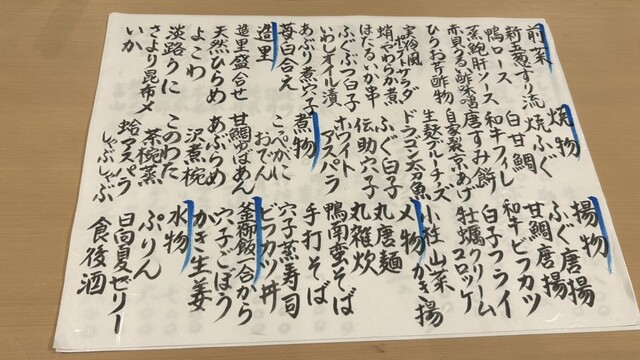 前菜
新玉葱すり流
鴨ロース
蒸鮑肝ソース
赤貝うるい酢味噌
ひろお芹酢物
実伶風ポテトサラダ
蛸やわらか煮
ほたるいか串
ふぐぶつ白子
いわしオイル漬
あぶり煮穴子
苺白合え
造里
造里盛合せ
天然ひらめ
よこわ
淡路うに
さより昆布〆
いか
焼物
焼ふぐ
白甘鯛
和牛フィレ
唐すみ餅
自家製京あげ
生麩ブルーチーズ
ふぐ白子
伝助穴子
ホワイトアスパラ
煮物
こっぺがにおでん
甘鯛ゆばあん
あぶらめ沢煮椀
このわた茶椀蒸
蛤アスパラしゃぶしゃぶ
揚物
ふぐ唐揚
甘鯛唐揚
和牛ビフカツ
白子フライ
牡蠣クリームコロッケ
山菜かき揚
〆物
丸唐麺
丸雑炊
鴨南蛮そば
手打そば
穴子蒸寿司
ビフカツ丼
釜御飯一合から
穴子ごぼう
かき生姜
水物
ぷりん
日向夏ゼリー
食後酒